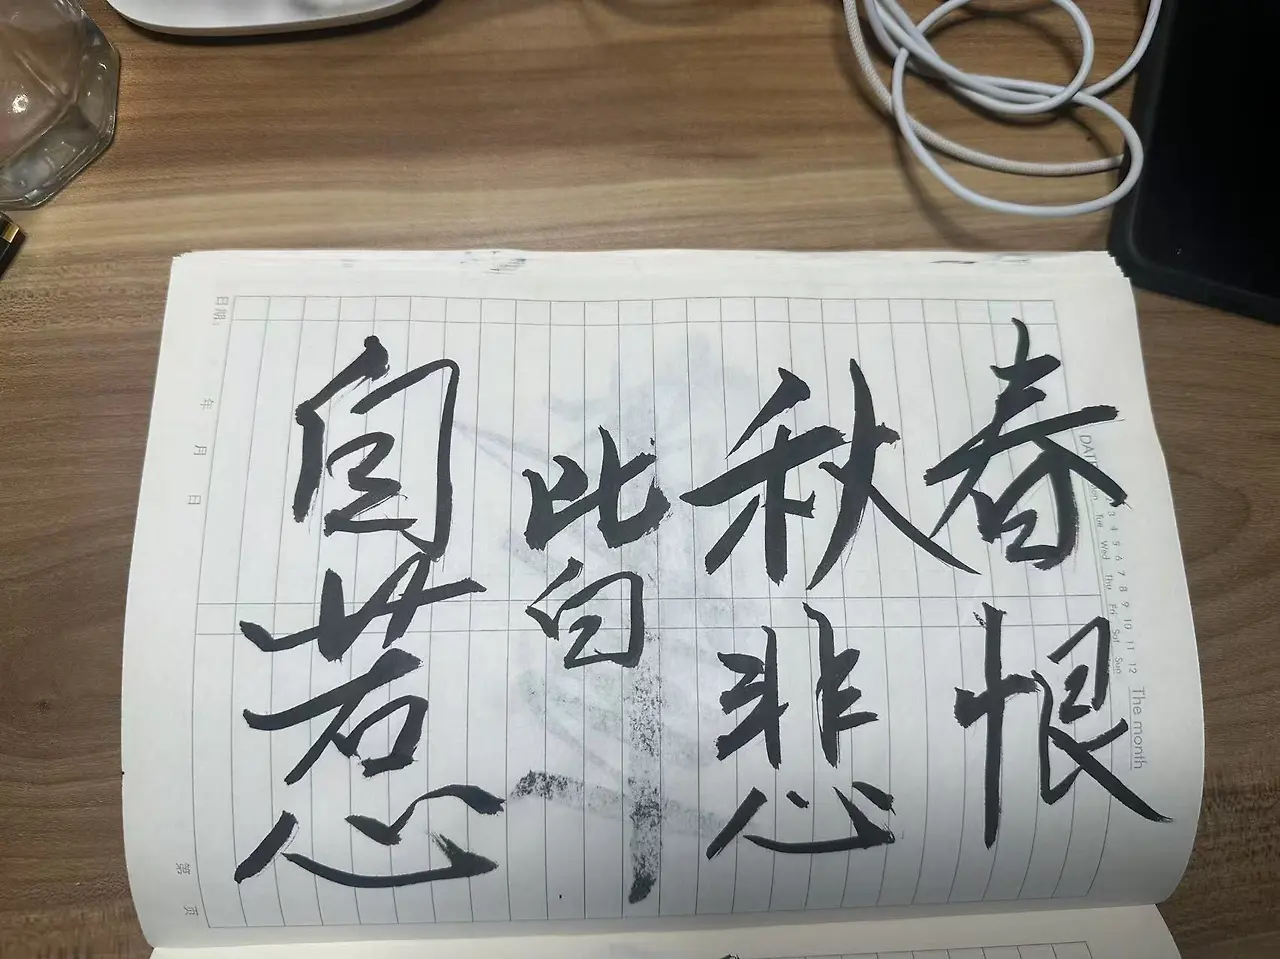 春恨
秋悲
皆
自惹
3 4 5 6 7 8 9 10 11 12 The month
DATE Tue Wed Thu Fri Sat Sun
日期: 年 月 日
第 页